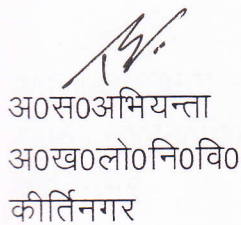 अ0स0अभियन्ता
अ0ख0लो0नि0वि0
कीर्तिनगर